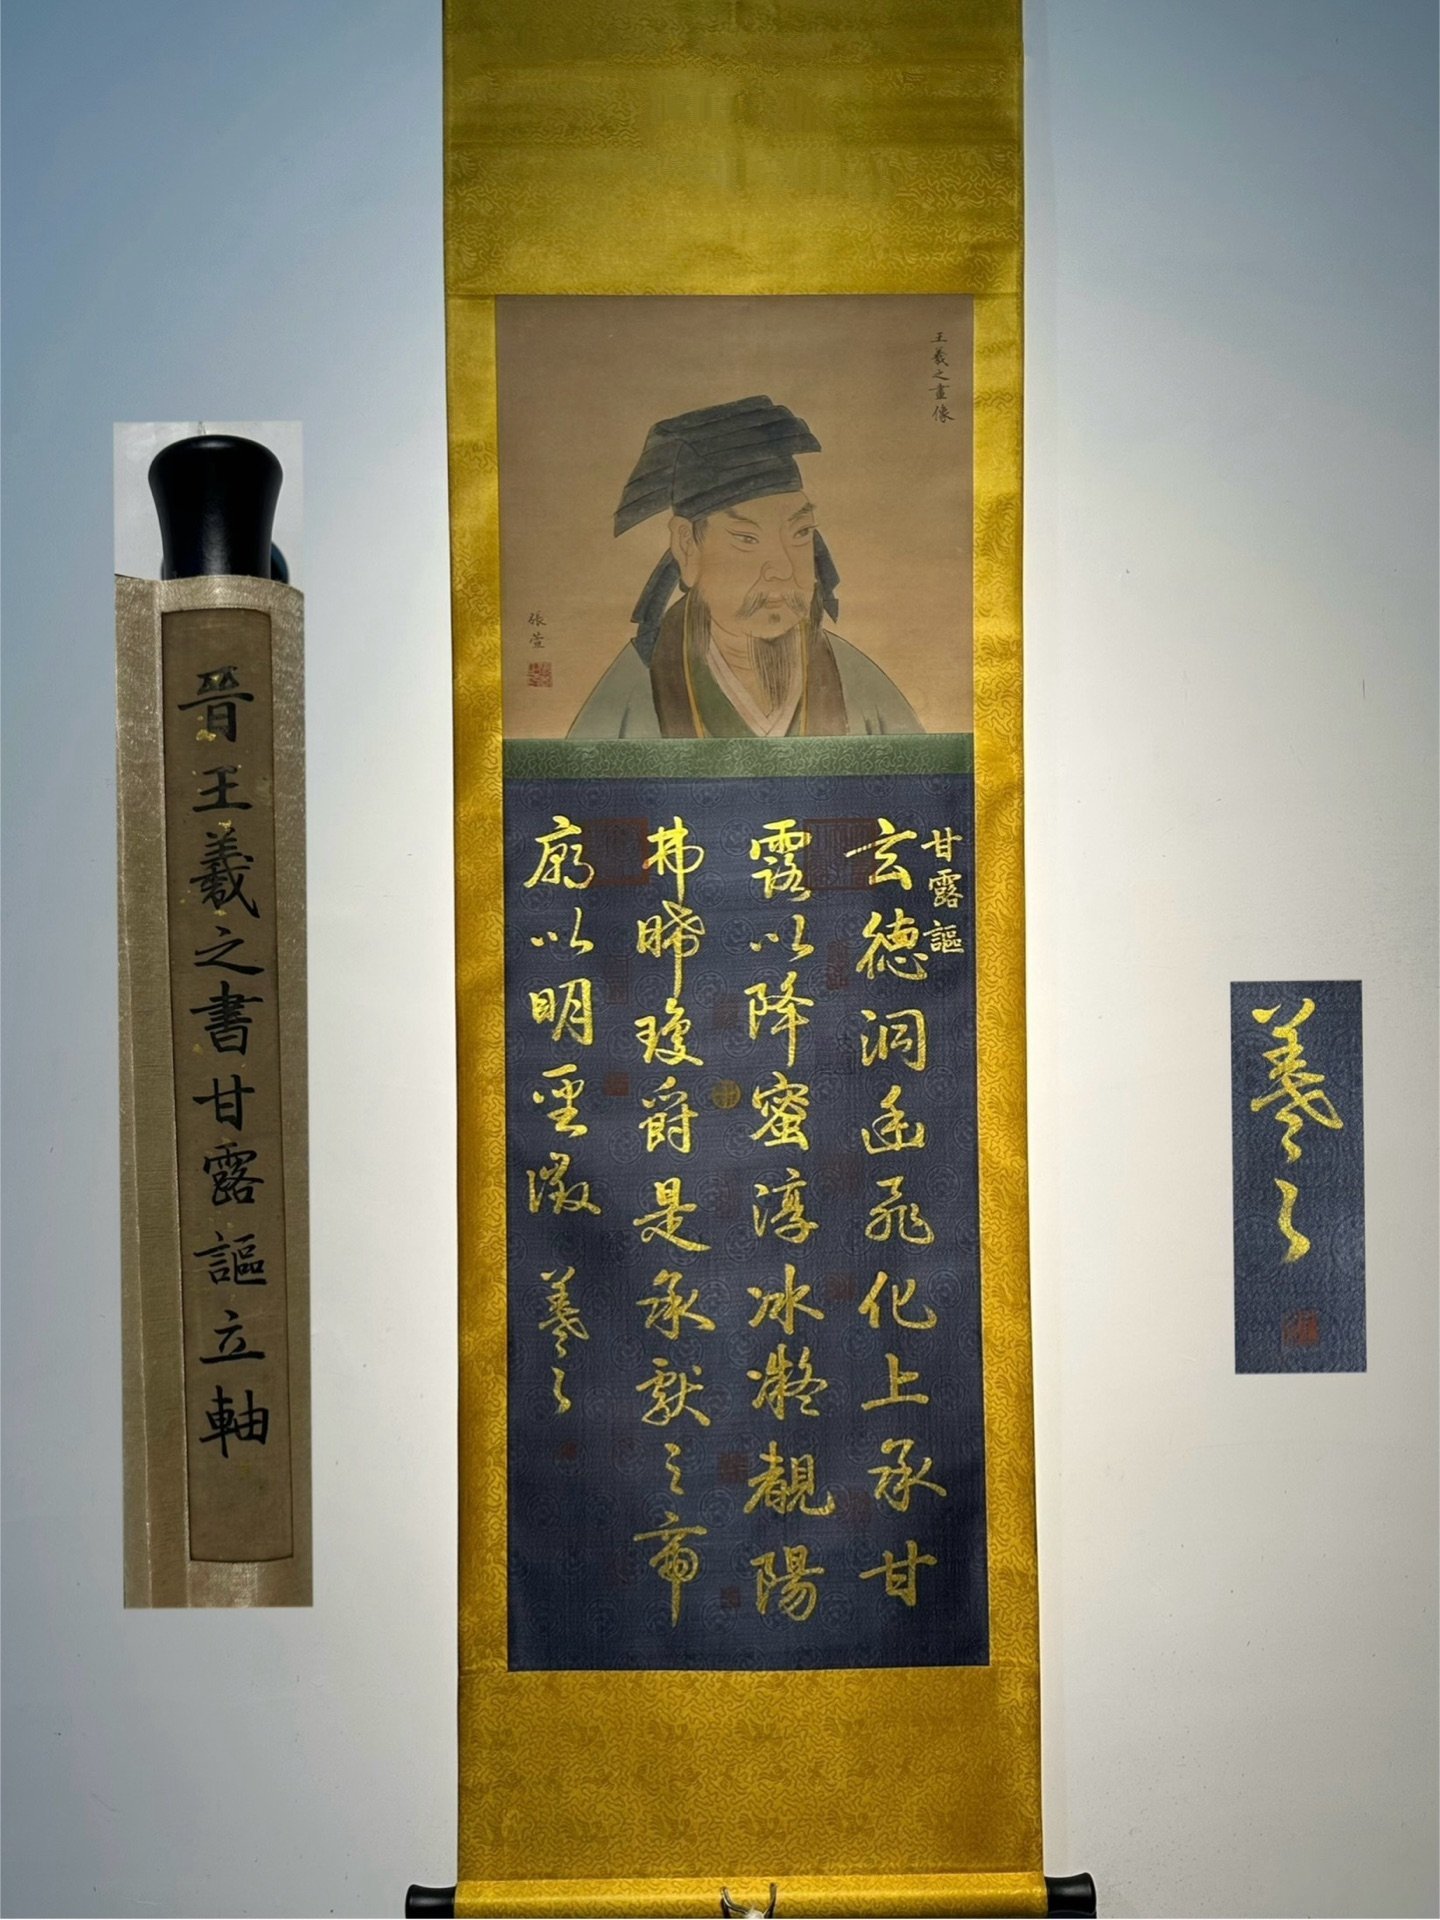 晉王羲之書甘露謳立軸
王羲之畫像
張萱
甘露謳
玄德洞幽飛化上承甘
露以降蜜淳冰凝覩陽
弗晞瓊爵是承獻之帝
廟以明聖徵
羲之
羲之